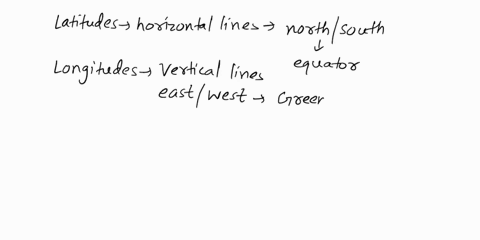 Latitudes → horizontal lines → north/south
↓
equator
Longitudes → Vertical lines
east/west → Greer